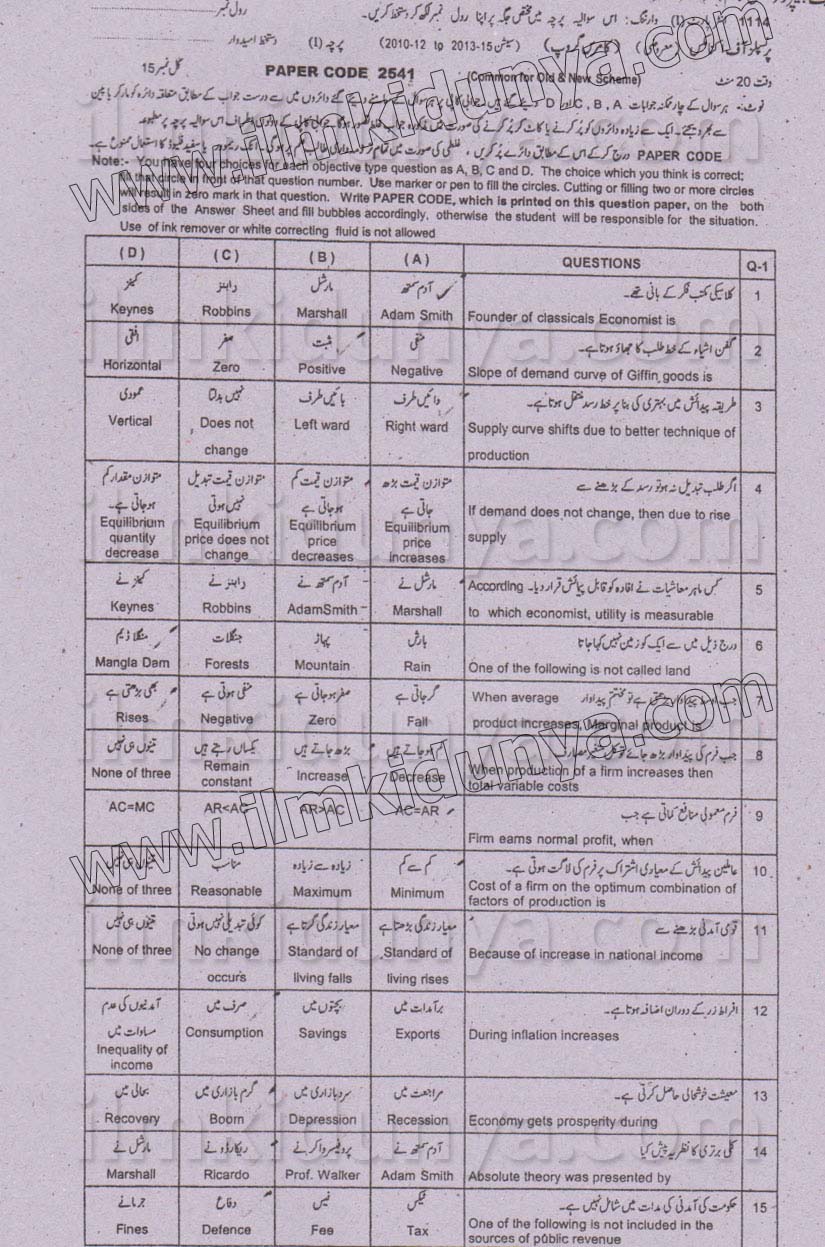 1114
وارننگ: اس سوالیہ پرچہ میں مختص جگہ پر اپنا رول نمبر لکھ کر دستخط کریں۔
رول نمبر
(سیشن 2010-12 to 2013-15)
پرچہ (I)
دستخط امیدوار
وقت 20 منٹ
(Common for Old & New Scheme)
PAPER CODE 2541
کل نمبر 15
Note:- You have four choices for each objective type question as A, B, C and D. The choice which you think is correct;
fill that circle in front of that question number. Use marker or pen to fill the circles. Cutting or filling two or more circles
will result in zero mark in that question. Write PAPER CODE, which is printed on this question paper, on the both
sides of the Answer Sheet and fill bubbles accordingly, otherwise the student will be responsible for the situation.
Use of ink remover or white correcting fluid is not allowed
(D) (C) (B) (A) QUESTIONS Q-1
کینز رابنز مارشل آدم سمتھ کلاسیکی مکتب فکر کے بانی تھے۔ 1
Keynes Robbins Marshall Adam Smith Founder of classicals Economist is
افقی صفر مثبت منفی گفن اشیاء کے خط طلب کا جھکاؤ ہوتا ہے۔ 2
Horizontal Zero Positive Negative Slope of demand curve of Giffin goods is
عمودی نہیں بدلتا بائیں طرف دائیں طرف طریقہ پیدائش میں بہتری کی بنا پر خط رسد منتقل ہوتا ہے۔ 3
Vertical Does not Left ward Right ward Supply curve shifts due to better technique of
change production
متوازن مقدار کم متوازن قیمت تبدیل متوازن قیمت کم متوازن قیمت بڑھ اگر طلب تبدیل نہ ہو تو رسد کے بڑھنے سے 4
ہو جاتی ہے۔ نہیں ہوتی ہو جاتی ہے جاتی ہے If demand does not change, then due to rise
Equilibrium Equilibrium Equilibrium Equilibrium supply
quantity price does not price price
decrease change decreases increases
کینز نے رابنز نے آدم سمتھ نے مارشل نے کس ماہر معاشیات نے افادہ کو قابل پیمائش قرار دیا۔ According 5
Keynes Robbins AdamSmith Marshall to which economist, utility is measurable
منگلا ڈیم جنگلات پہاڑ بارش درج ذیل میں سے ایک کو زمین نہیں کہا جاتا 6
Mangla Dam Forests Mountain Rain One of the following is not called land
بھی بڑھتی ہے منفی ہوتی ہے صفر ہو جاتی ہے گر جاتی ہے When average 7
Rises Negative Zero Fall product increases, Marginal product is
تینوں ہی نہیں یکساں رہتے ہیں بڑھ جاتے ہیں 8
None of three Remain constant Increase Decrease When production of a firm increases then
total variable costs
AC=MC AR<AC AR>AC AC=AR فرم معمولی منافع کماتی ہے جب 9
Firm earns normal profit, when
تینوں ہی نہیں مناسب زیادہ سے زیادہ کم سے کم عاملین پیدائش کے معیاری اشتراک پر فرم کی لاگت ہوتی ہے۔ 10
None of three Reasonable Maximum Minimum Cost of a firm on the optimum combination of
factors of production is
تینوں ہی نہیں کوئی تبدیلی نہیں ہوتی معیار زندگی گرتا ہے معیار زندگی بڑھتا ہے قومی آمدنی بڑھنے سے 11
None of three No change Standard of Standard of Because of increase in national income
occurs living falls living rises
آمدنیوں کی عدم صرف میں بچتوں میں برآمدات میں افراط زر کے دوران اضافہ ہوتا ہے۔ 12
مساوات میں Consumption Savings Exports During inflation increases
Inequality of
income
بحالی میں گرم بازاری میں سرد بازاری میں مراجعت میں معیشت خوشحالی حاصل کرتی ہے۔ 13
Recovery Boom Depression Recession Economy gets prosperity during
مارشل نے ریکارڈو نے پروفیسر واکر نے آدم سمتھ نے کلی برتری کا نظریہ پیش کیا 14
Marshall Ricardo Prof. Walker Adam Smith Absolute theory was presented by
جرمانے دفاع فیس ٹیکس حکومت کی آمدنی کی مدات میں شامل نہیں ہے۔ 15
Fines Defence Fee Tax One of the following is not included in the
sources of public revenue
www.ilmkidunya.com
www.ilmkidunya.com